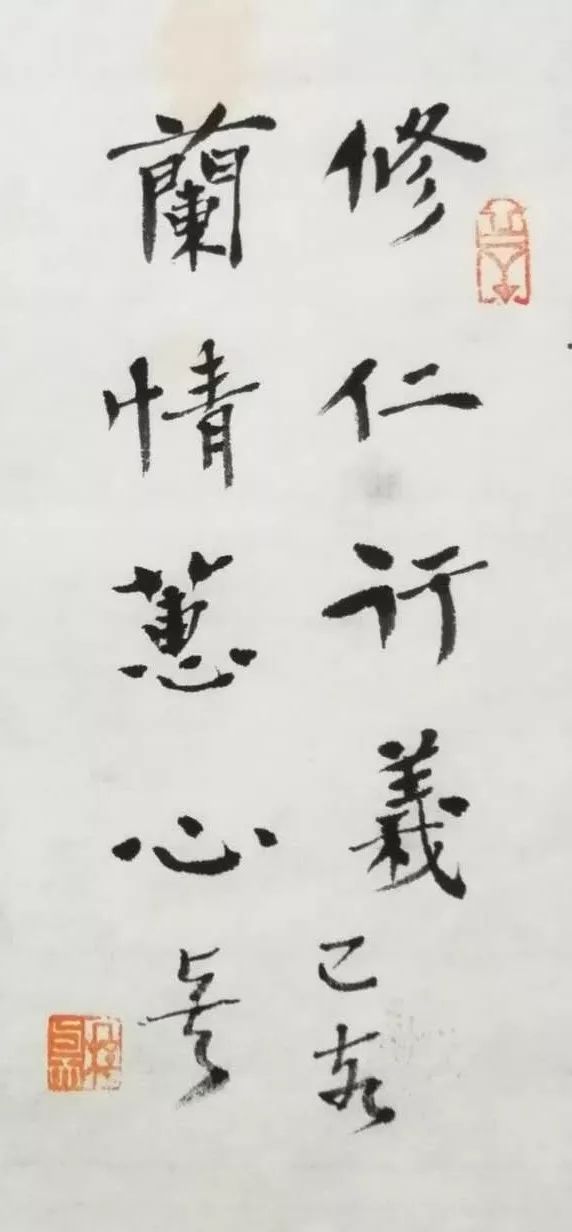 修仁行義 己亥
蘭情蕙心